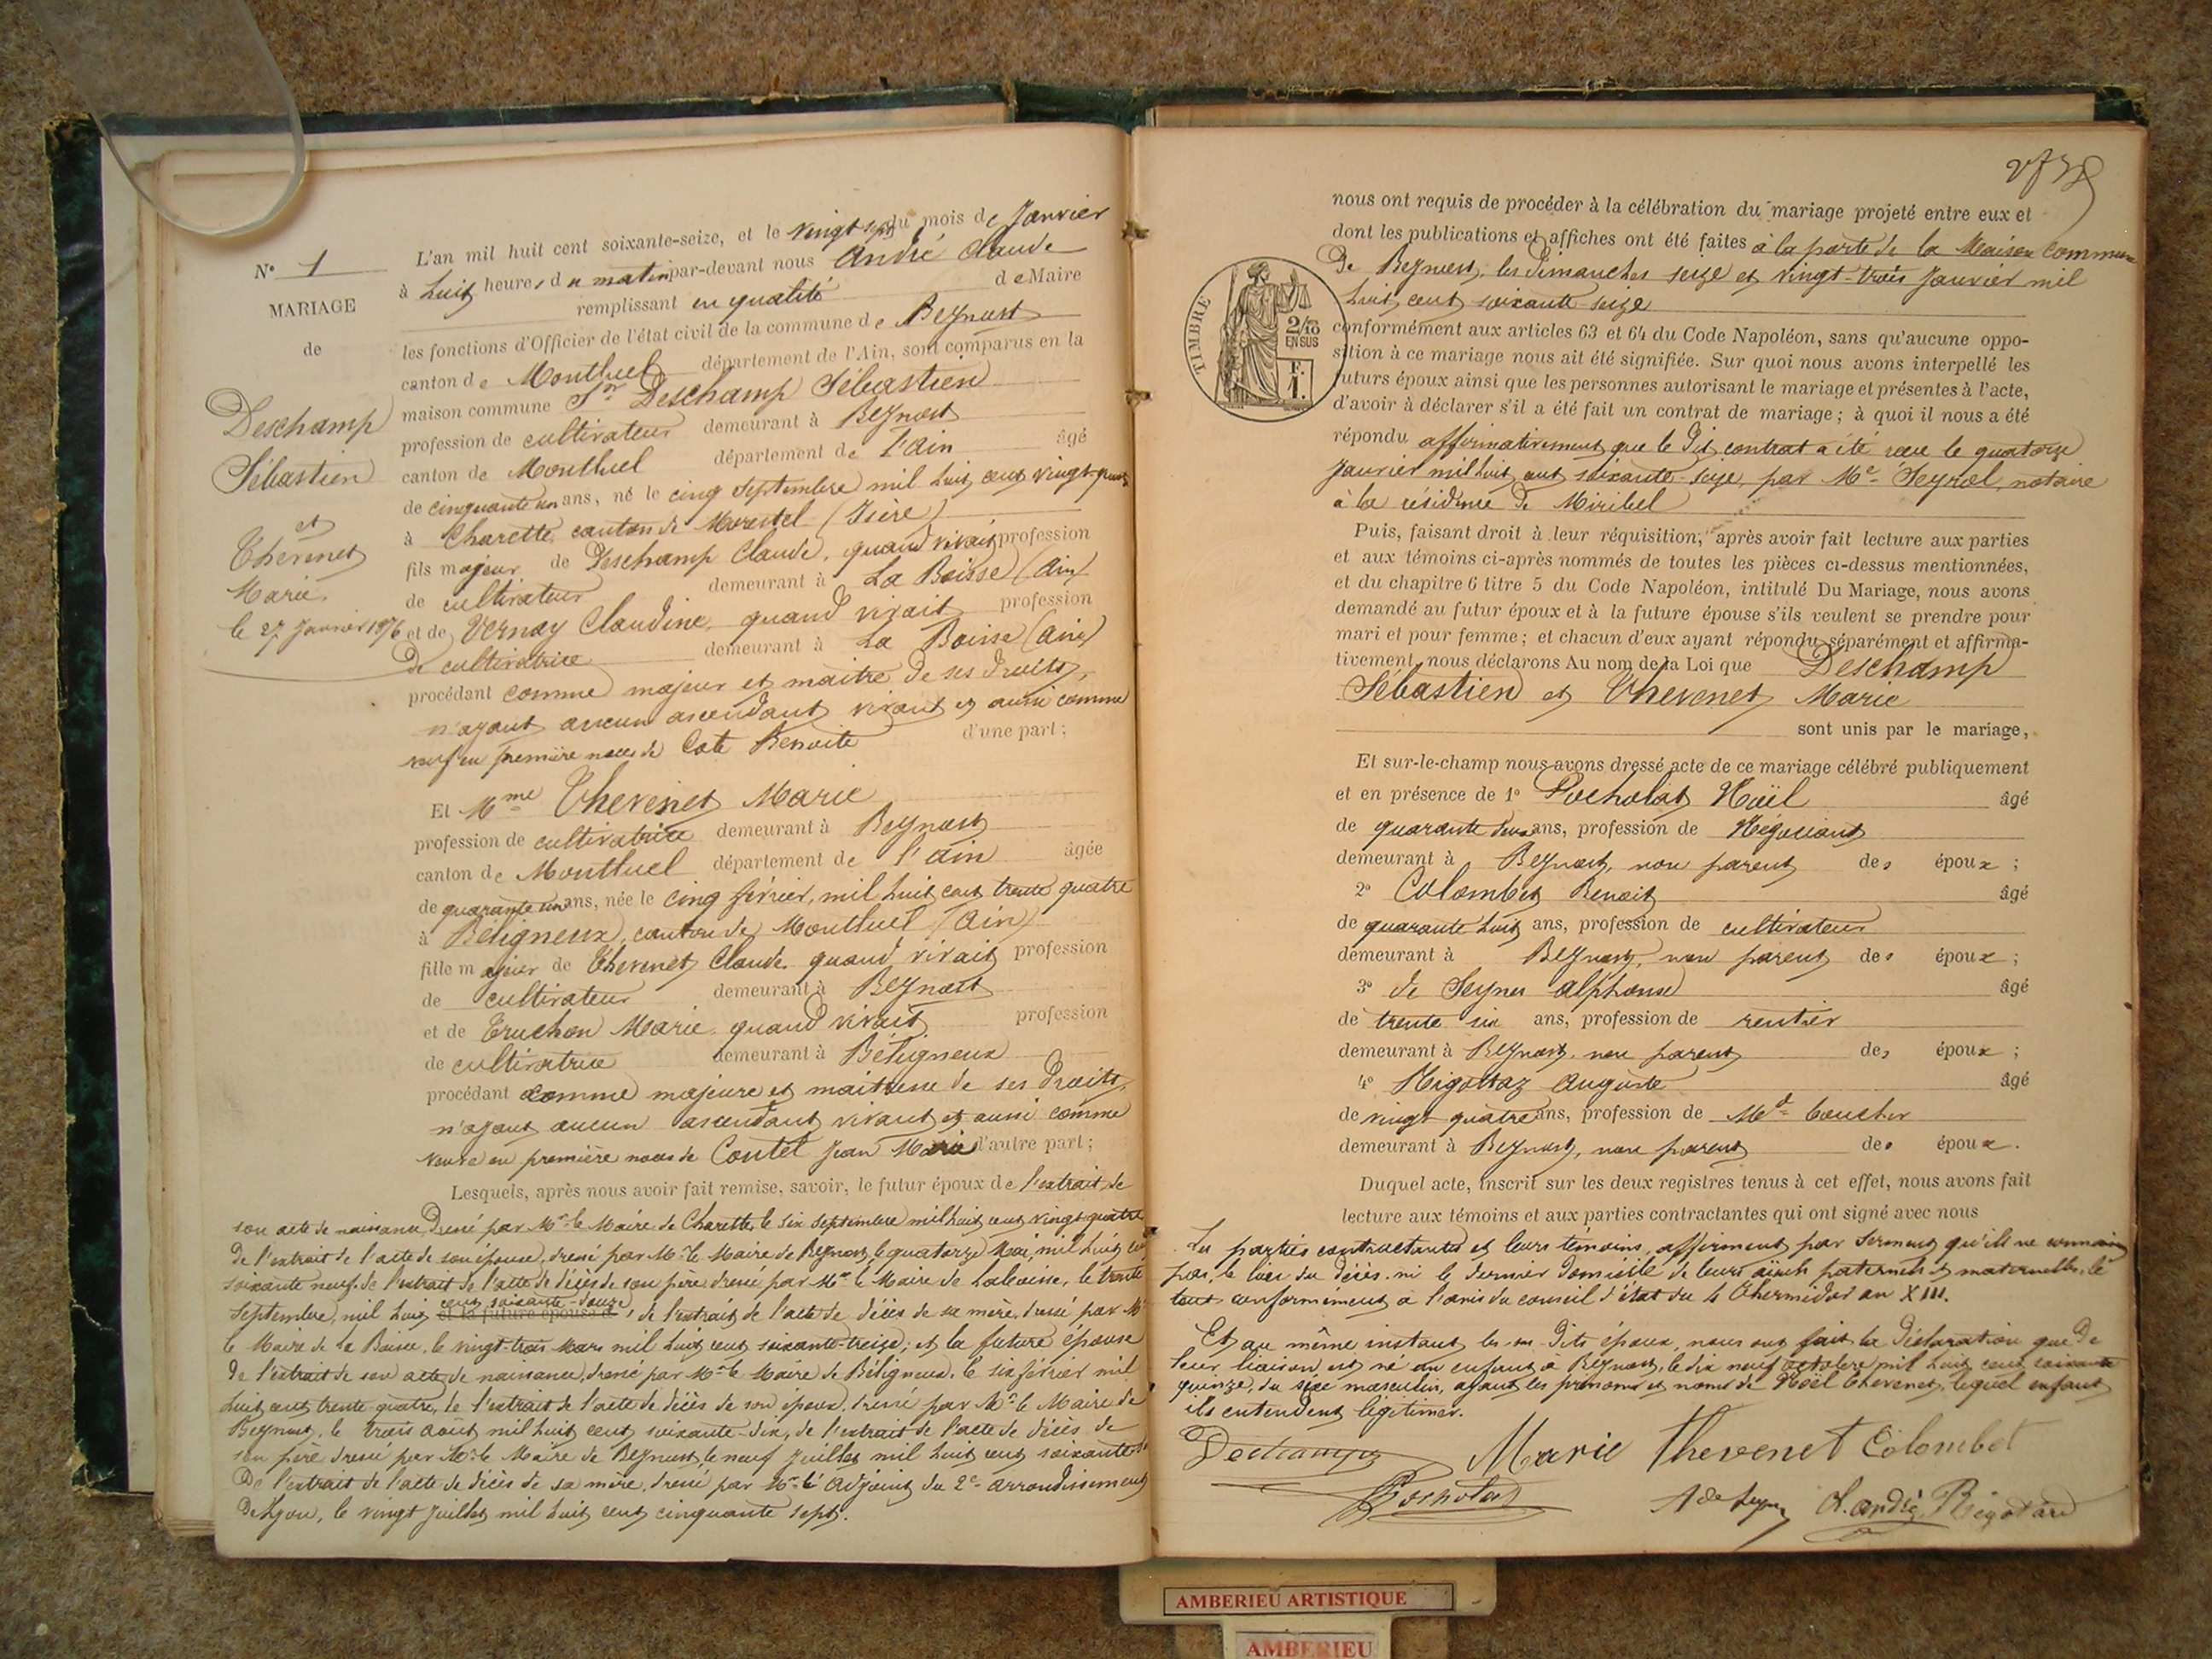 N° 1
MARIAGE
de
Deschamp
Sébastien
et
Thévenet
Marie
le 27 Janvier 1876
L'an mil huit cent soixante-seize, et le vingt sept du mois de Janvier
à huit heures du matin par-devant nous André Claude
remplissant en qualité de Maire
les fonctions d'Officier de l'état civil de la commune de Beynost
canton de Montluel département de l'Ain, sont comparus en la
maison commune Sr Deschamp Sébastien
profession de cultivateur demeurant à Beynost
canton de Montluel département de l'Ain âgé
de cinquante un ans, né le cinq Septembre mil huit cent vingt-quatre
à Charette, canton de Morestel (Isère)
fils majeur de Deschamp Claude, quand vivait profession
de cultivateur demeurant à La Boisse (Ain)
et de Vernay Claudine quand vivait profession
de cultivatrice demeurant à La Boisse (Ain)
procédant comme majeur et maitre de ses droits,
n'ayant aucun ascendant vivant et aussi comme
veuf en première noces de Cote Benoite d'une part ;
Et Mme Thevenet Marie
profession de cultivatrice demeurant à Beynost
canton de Montluel département de l'Ain âgée
de quarante un ans, née le cinq février, mil huit cent trente quatre
à Béligneux, canton de Montluel (Ain)
fille majeur de Thevenet Claude quand vivait profession
de cultivateur demeurant à Beynost
et de Truchon Marie quand vivait profession
de cultivatrice demeurant à Béligneux
procédant comme majeure et maitresse de ses droits,
n'ayant aucun ascendant vivant et aussi comme
veuve en première noces de Contet Jean Marie d'autre part ;
Lesquels, après nous avoir fait remise, savoir, le futur époux de l'extrait de
son acte de naissance, dressé par Mr le Maire de Charette, le six septembre mil huit cent vingt quatre
de l'extrait de l'acte de son épouse, dressé par Mr le Maire de Beynost, le quatorze Mai, mil huit cent
soixante neuf, de l'extrait de l'acte de décès de son père dressé par Mr le Maire de Laboisse, le trente
septembre, mil huit cent soixante-douze et la future épouse de, de l'extrait de l'acte de décès de sa mère, dressé par Mr
le Maire de La Boisse, le vingt-trois Mars mil huit cent soixante-treize; et la future épouse
de l'extrait de son acte de naissance, dressé par Mr le Maire de Béligneux, le six février mil
huit cent trente quatre, de l'extrait de l'acte de décès de son époux, dressé par Mr le Maire de
Beynost, le trois août mil huit cent soixante-dix, de l'extrait de l'acte de décès de
son père dressé par Mr le Maire de Beynost, le neuf juillet mil huit cent soixante
De l'extrait de l'acte de décès de sa mère, dressé par Mr l'adjoint du 2e arrondissement
De Lyon, le vingt juillet mil huit cent cinquante sept.
nous ont requis de procéder à la célébration du mariage projeté entre eux et
dont les publications et affiches ont été faites à la porte de la Maison Commune
De Beynost, les Dimanches seize et vingt-trois Janvier mil
huit cent soixante-seize
TIMBRE
2/10
EN SUS
F.
1.
conformément aux articles 63 et 64 du Code Napoléon, sans qu'aucune oppo-
sition à ce mariage nous ait été signifiée. Sur quoi nous avons interpellé les
futurs époux ainsi que les personnes autorisant le mariage et présentes à l'acte,
d'avoir à déclarer s'il a été fait un contrat de mariage ; à quoi il nous a été
répondu affirmativement que le dit contrat a été reçu le quatorze
Janvier mil huit cent soixante-seize, par Me Seyrol, notaire
à la résidence de Miribel
Puis, faisant droit à leur réquisition, après avoir fait lecture aux parties
et aux témoins ci-après nommés de toutes les pièces ci-dessus mentionnées,
et du chapitre 6 titre 5 du Code Napoléon, intitulé Du Mariage, nous avons
demandé au futur époux et à la future épouse s'ils veulent se prendre pour
mari et pour femme ; et chacun d'eux ayant répondu séparément et affirma-
tivement, nous déclarons Au nom de la Loi que Deschamp
Sébastien et Thevenet Marie
sont unis par le mariage,
Et sur-le-champ nous avons dressé acte de ce mariage célébré publiquement
et en présence de 1° Pocholat Noël âgé
de quarante deux ans, profession de Négociant
demeurant à Beynost, non parent des époux ;
2° Colombet Benoit âgé
de quarante huit ans, profession de cultivateur
demeurant à Beynost, non parent des époux ;
3° de Seynes Alphonse âgé
de trente six ans, profession de rentier
demeurant à Beynost, non parent des époux ;
4° Rigottaz Auguste âgé
de vingt quatre ans, profession de Md boucher
demeurant à Beynost, non parent des époux.
Duquel acte, inscrit sur les deux registres tenus à cet effet, nous avons fait
lecture aux témoins et aux parties contractantes qui ont signé avec nous
Les parties contractantes et leurs témoins, affirment par serment qu'ils ne connaissent
pas, le lieu du décès, ni le dernier domicile de leurs aïeuls paternels et maternelles, le
tout conformément à l'avis du conseil d'état du 4 Thermidor an XIII.
Et au même instant les sus-dits époux, nous ont fait la déclaration que de
leur liaison est né un enfant à Beynost, le dix neuf octobre mil huit cent soixante
quinze, du sexe masculin, ayant les prénoms et noms de Noël Thevenet, lequel enfant
ils entendent légitimer.
Dechamp Marie Thevenet Colombet
Pocholat A de Seynes Cl. André Rigotard
AMBERIEU ARTISTIQUE
AMBERIEU